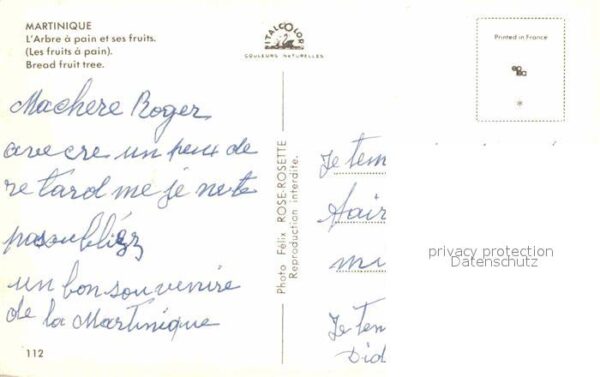 MARTINIQUE
L'Arbre à pain et ses fruits.
(Les fruits à pain).
Bread fruit tree.
ITALCOLOR
COULEURS NATURELLES
Printed in France
Machere Roger
avecre un peux de
retard me je ne te
pasoubliér
un bon souvenire
de la Martinique
112
Photo Félix ROSE-ROSETTE
Reproduction interdite.
Je tem
fair
mi
Je tem
Did
privacy protection
Datenschutz